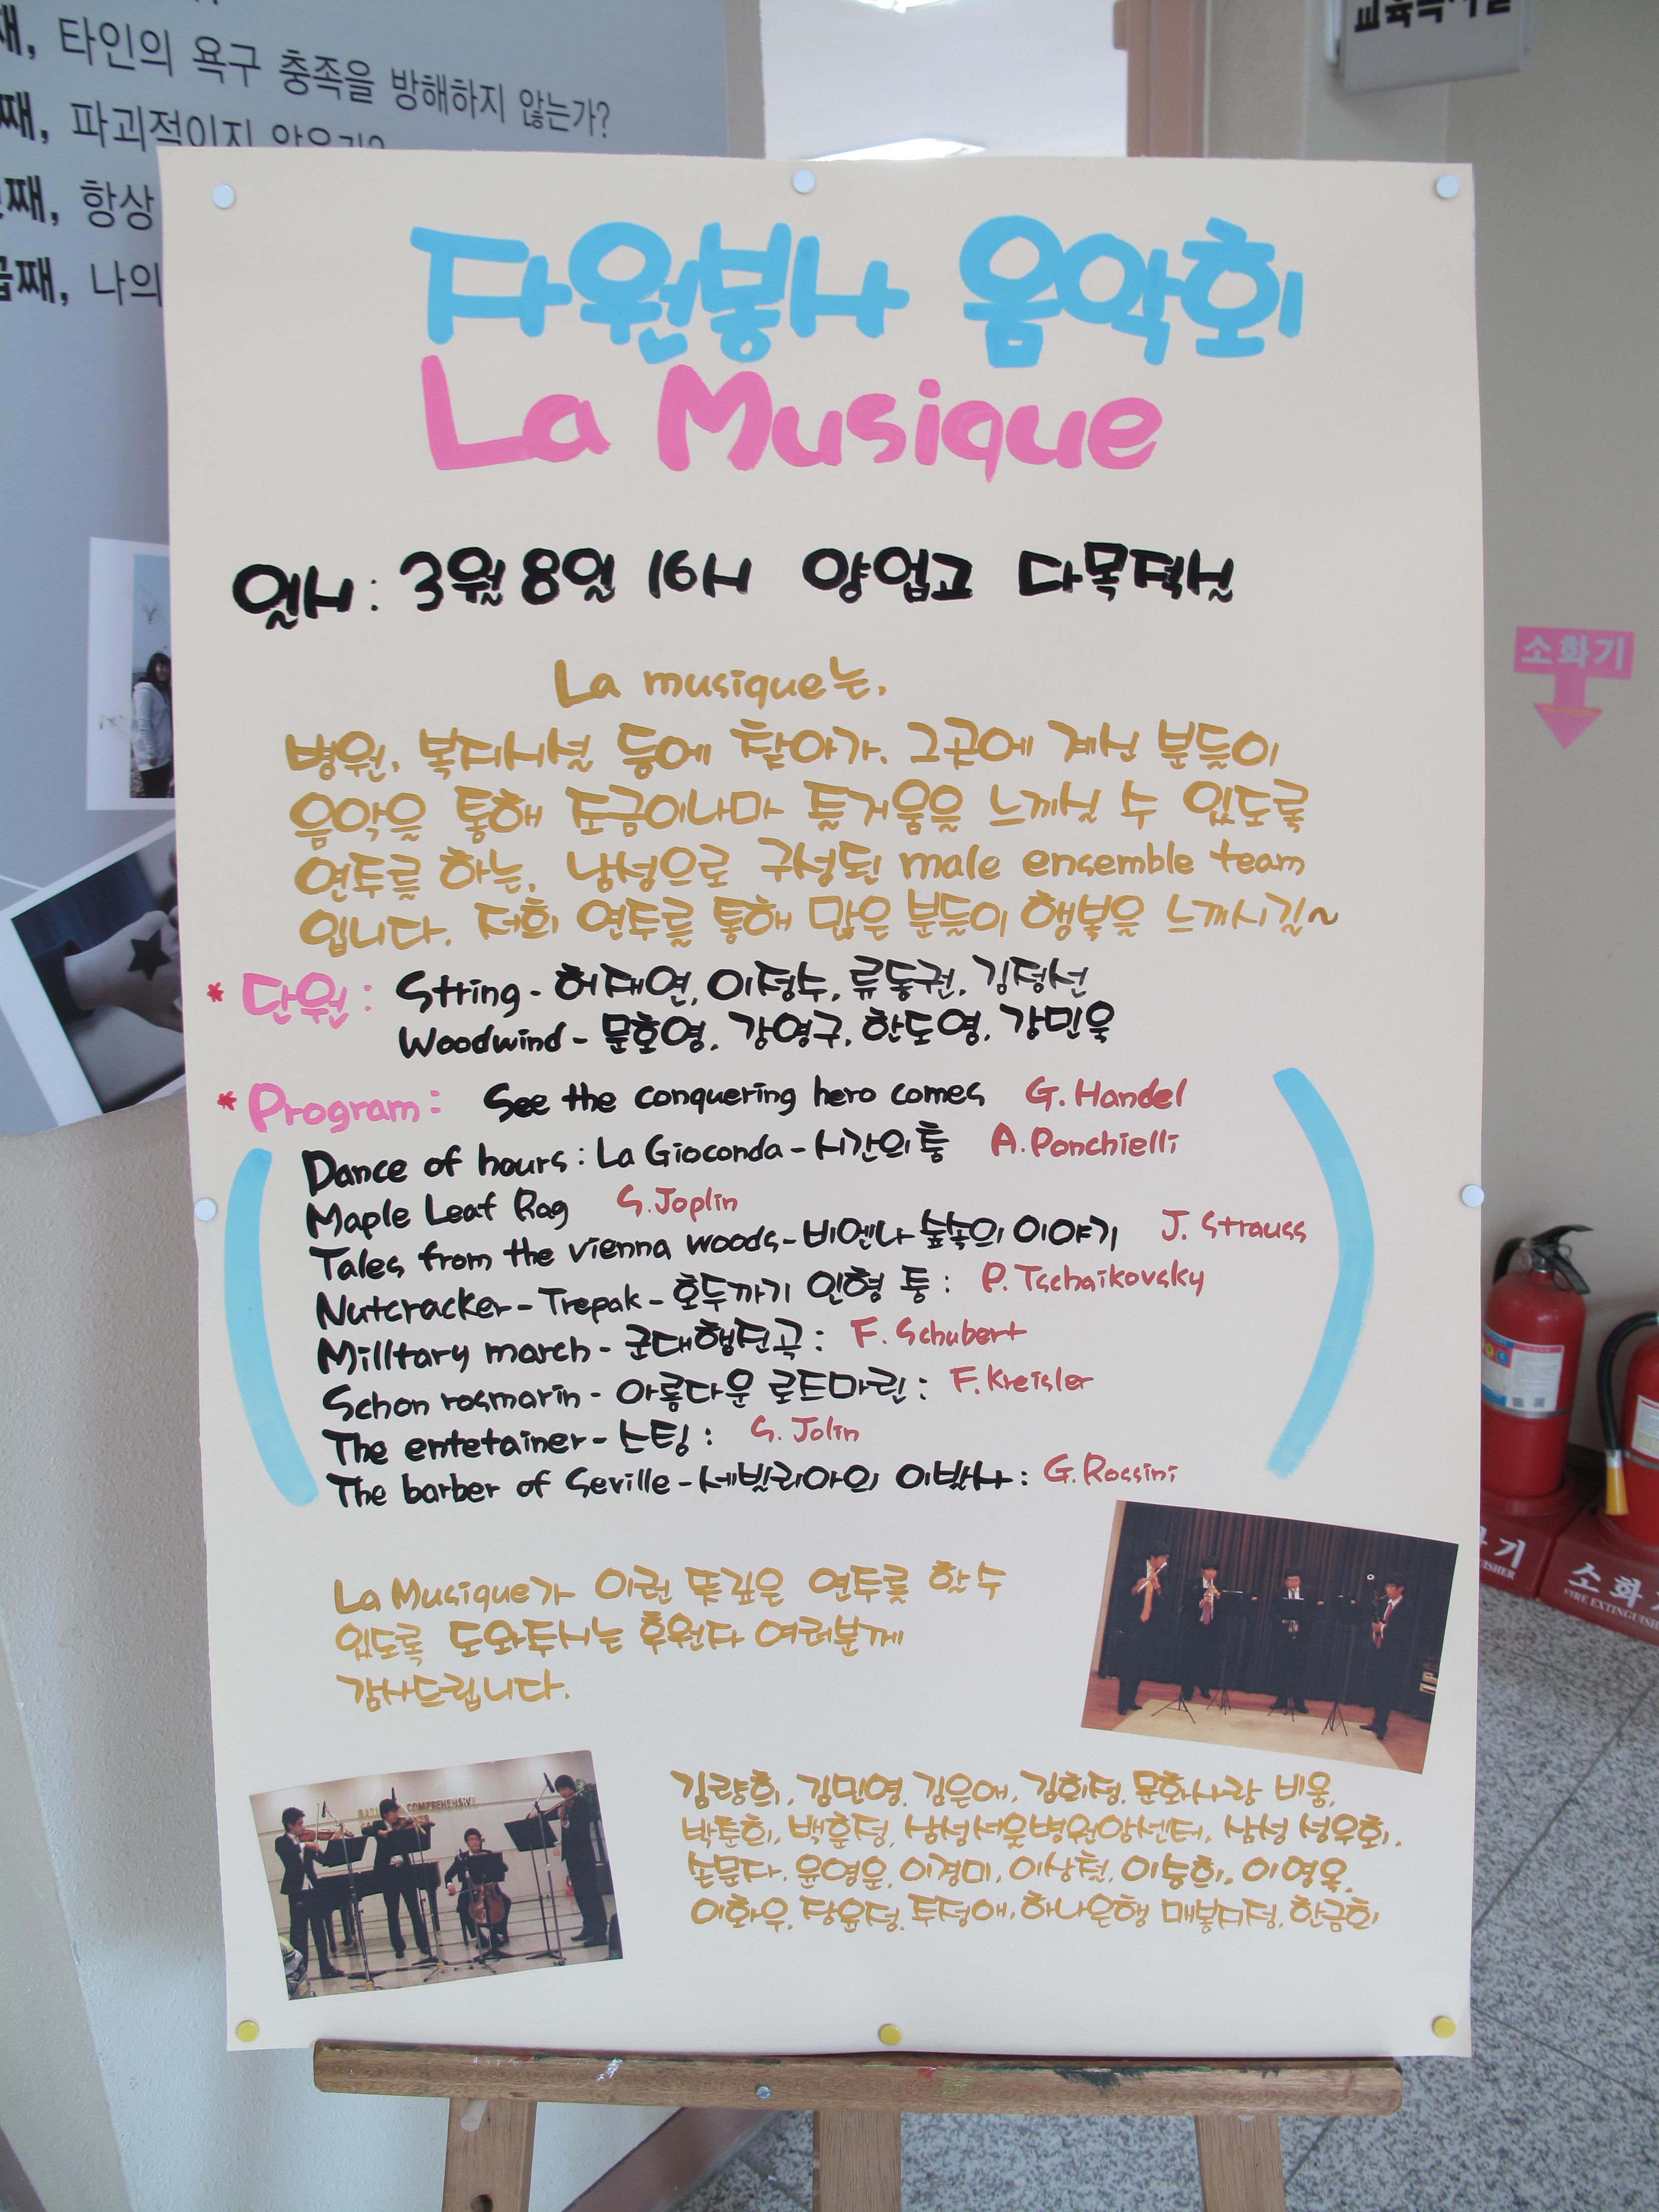 째, 타인의 욕구 충족을 방해하지 않는가?
째, 파괴적이지 않은가?
째, 항상
째, 나의
자원봉사 음악회
La Musique
일시: 3월 8일 16시 양업교 다목적실
La musique는,
병원, 복지시설 등에 찾아가, 그곳에 계신 분들이
음악을 통해 조금이나마 즐거움을 느끼실 수 있도록
연주를 하는, 남성으로 구성된 male ensemble team
입니다. 저희 연주를 통해 많은 분들이 행복을 느끼시길~
* 단원: String - 허재연, 이정수, 류동권, 김정선
Woodwind - 문호영, 강영구, 한도영, 강민욱
* Program: See the conquering hero comes G. Handel
Dance of hours: La Gioconda - 시간의 춤 A. Ponchielli
Maple Leaf Rag S. Joplin
Tales from the vienna woods - 비엔나 숲속의 이야기 J. Strauss
Nutcracker - Trepak - 호두까기 인형 중: P. Tschaikovsky
Milltary march - 군대행진곡: F. Schubert
Schon rosmarin - 아름다운 로즈마린: F. Kreisler
The entetainer - 스팅: S. Jolin
The barber of Seville - 세빌리아의 이발사: G. Rossini
La Musique가 이런 뜻깊은 연주를 할 수
있도록 도와주시는 후원자 여러분께
감사드립니다.
COMPREHENSIVE
김량희, 김민영, 김은애, 김희정, 문화사랑 비움,
박준희, 백훈정, 삼성서울병원암센터, 삼성 성우회,
손문자, 윤영운, 이경미, 이상철, 이승희, 이영옥,
이화우, 장윤정, 주정애, 하나은행 매봉지점, 한금희
소화기
소화기